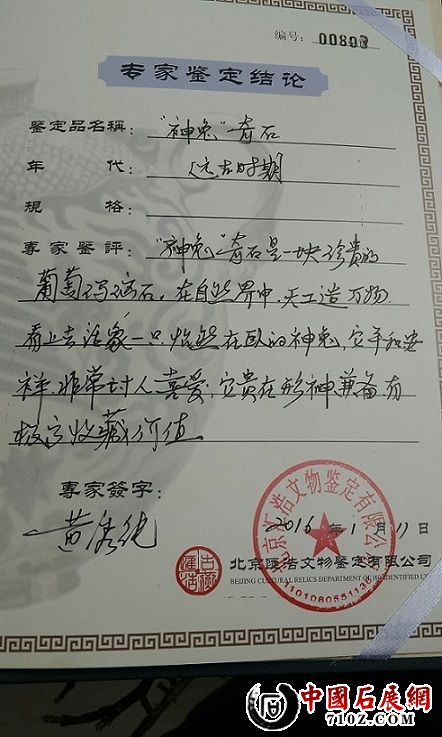 编号: 00803
专家鉴定结论
鉴定品名稱: "神兔"奇石
年 代: 远古时期
規 格:
專家鉴評: "神兔"奇石是一块珍贵的
葡萄玛瑙石, 在自然界中, 天工造万物,
看上去活象一只怡然在臥的神兔, 它平和安
祥, 非常讨人喜爱, 它贵在形神兼备有
极高收藏价值.
專家簽字:
2016年1月11日
北京汇浩文物鉴定有限公司
1101080551138
北京匯浩文物鉴定有限公司
BEIJING CULTURAL RELICS DEPARTMENT OF IDENTIFIED LTD
中國石展網
71OZ.COM